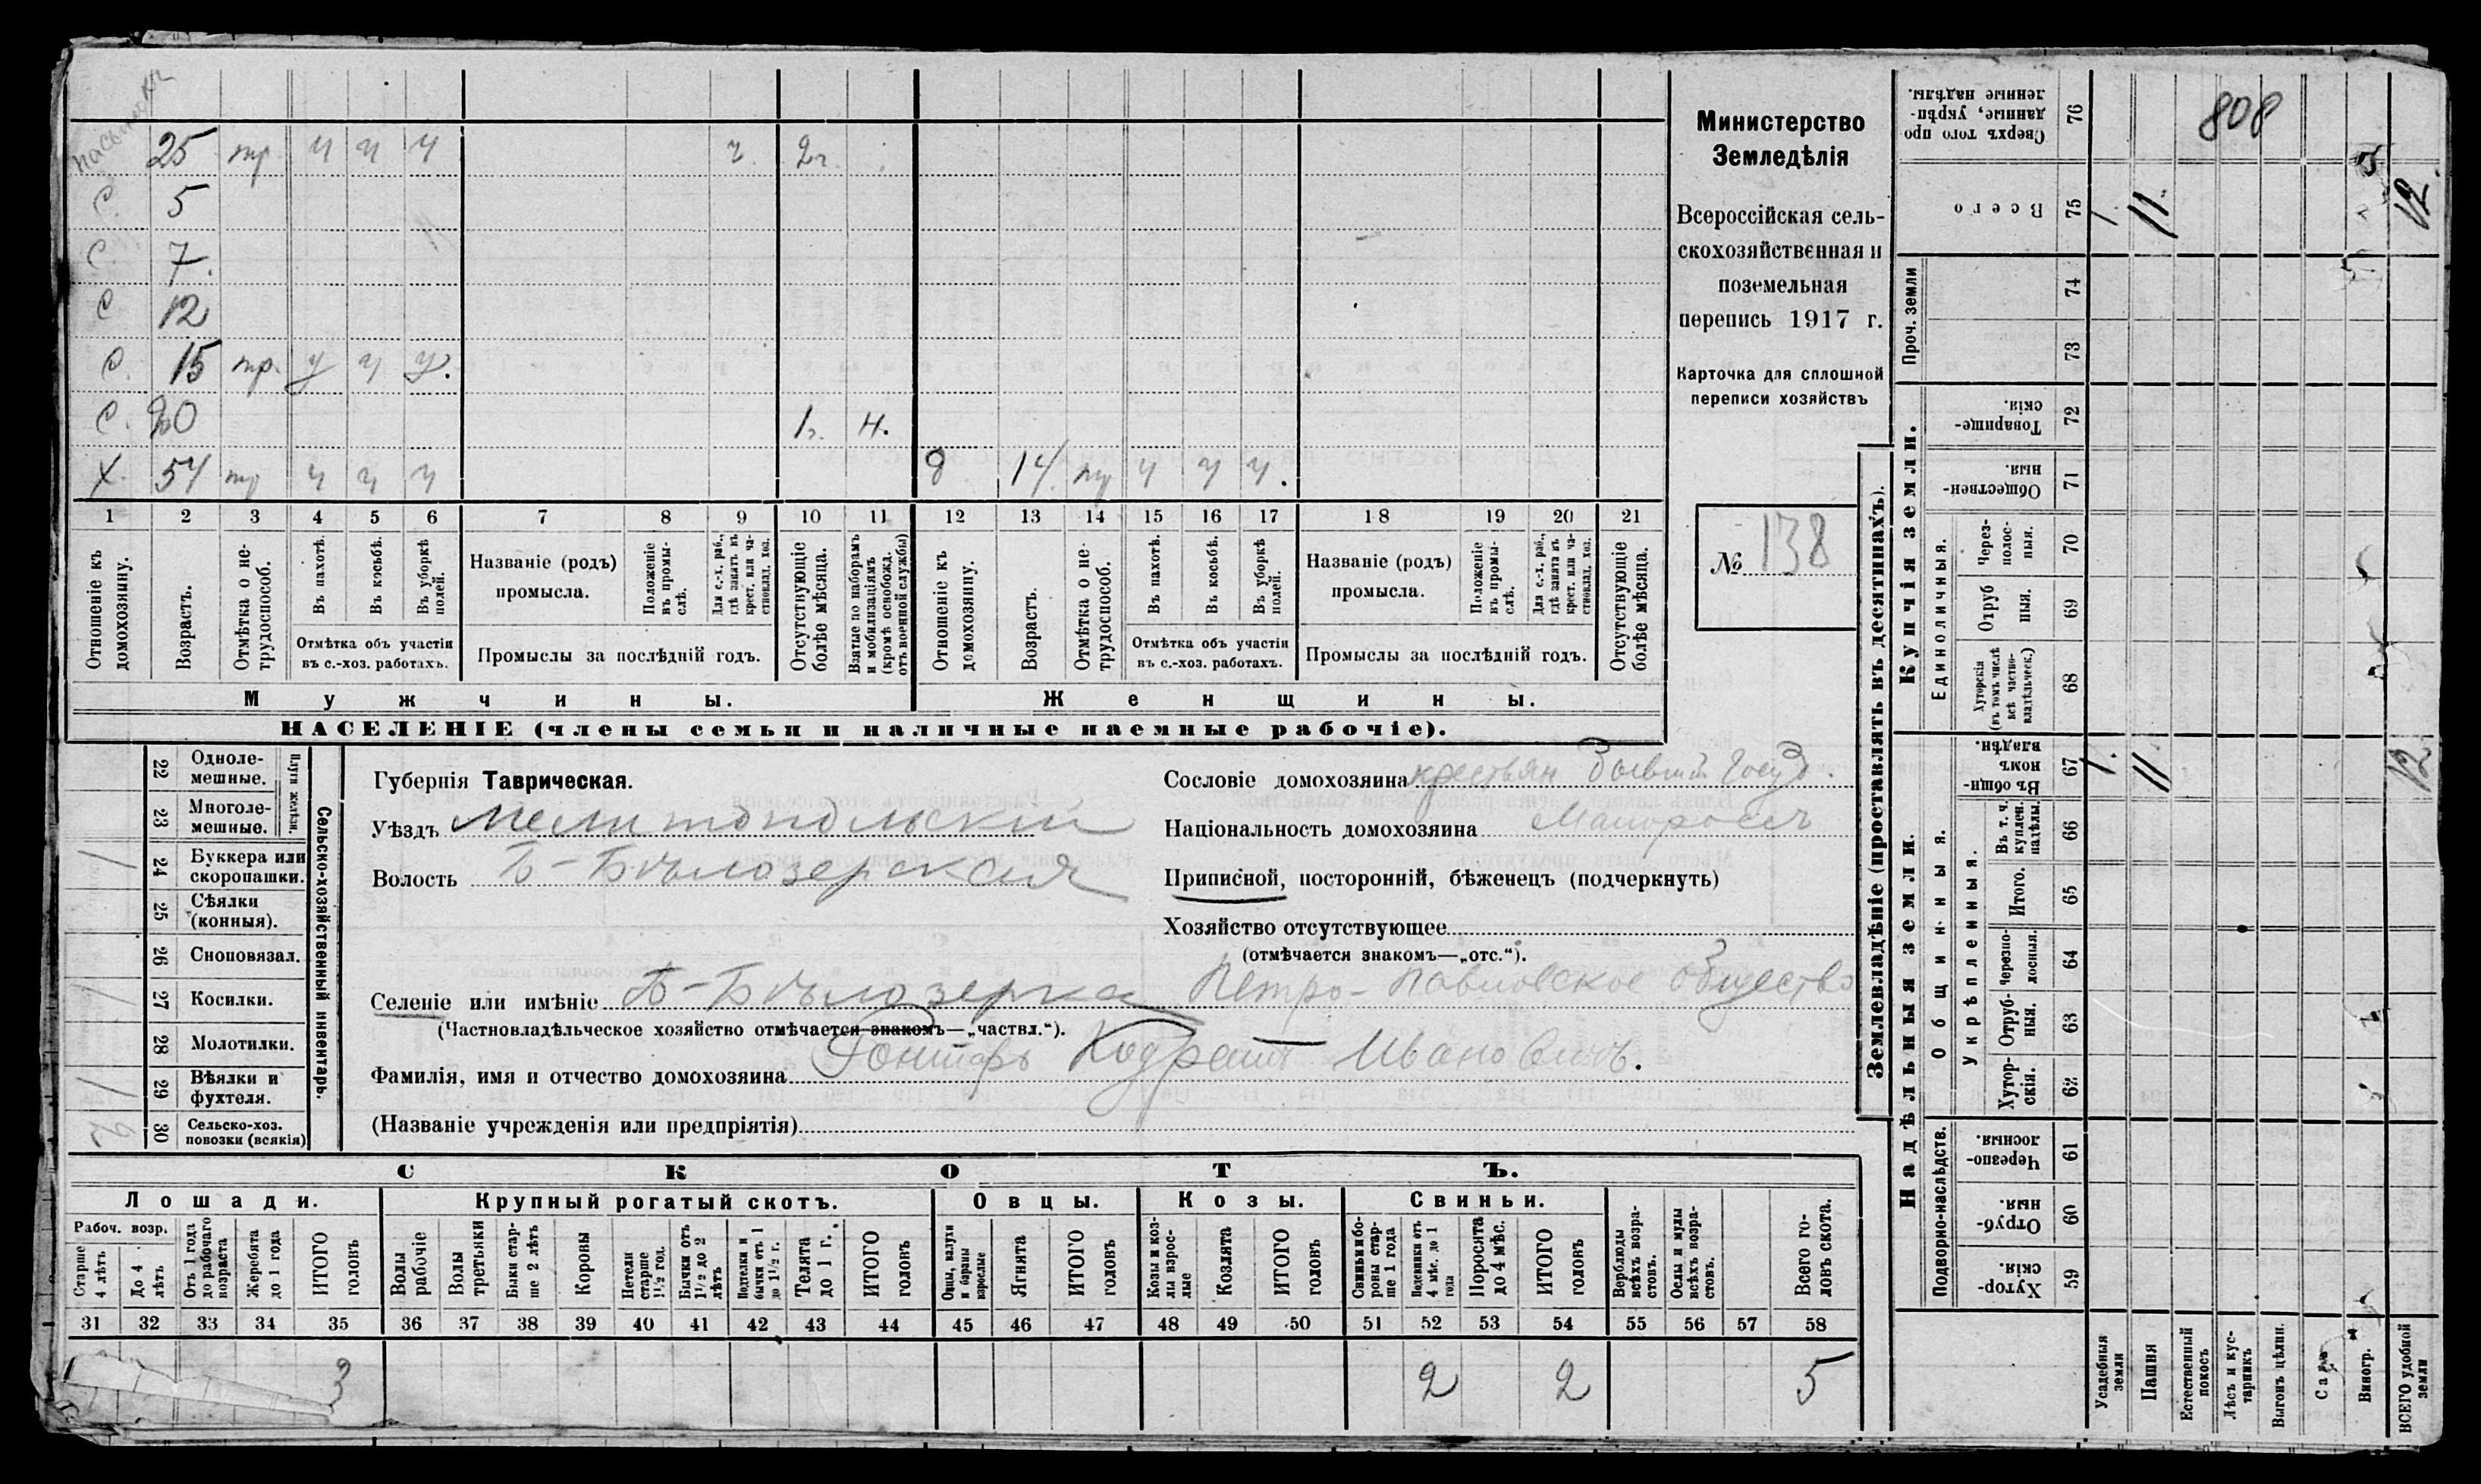 808
Министерство
Земледѣлія
Всероссійская сель-
скохозяйственная и
поземельная
перепись 1917 г.
Карточка для сплошной
переписи хозяйствъ
№ 138
25 тр ч ч ч 2г.
С. 5
С. 7.
С 12
С. 15 тр. ч ч ч.
С. 20 1г. н.
Х. 54 тр ч ч ч д 14 тр ч ч ч.
1 2 3 4 5 6 7 8 9 10 11 12 13 14 15 16 17 18 19 20 21
Отношеніе къ домохозяину.
Возрастъ.
Отмѣтка о не-трудоспособ.
Въ пахотѣ.
Въ косьбѣ.
Въ уборкѣ полей.
Отмѣтка объ участіи
въ с.-хоз. работахъ.
Названіе (родъ)
промысла.
Положеніе въ промы-слѣ.
Для с.-х. раб., гдѣ занятъ въ крест. или ча-стновлад. хоз.
Промыслы за послѣдній годъ.
Отсутствующіе болѣе мѣсяца.
Взятые по наборамъ и мобилизаціямъ (кромѣ освобожд. отъ военной службы)
Отношеніе къ домохозяину.
Возрастъ.
Отмѣтка о не-трудоспособ.
Въ пахотѣ.
Въ косьбѣ.
Въ уборкѣ полей.
Отмѣтка объ участіи
въ с.-хоз. работахъ.
Названіе (родъ)
промысла.
Положеніе въ промы-слѣ.
Для с.-х. раб., гдѣ занята въ крест. или ча-стновлад. хоз.
Промыслы за послѣдній годъ.
Отсутствующіе болѣе мѣсяца.
Мужчины.
Женщины.
НАСЕЛЕНІЕ (члены семьи и наличные наемные рабочіе).
Сельско-хозяйственный инвентарь.
Плуги желѣзн.
22 Одноле-мешные.
23 Многоле-мешные.
24 Буккера или скоропашки. 1
25 Сѣялки (конныя).
26 Сноповязал.
27 Косилки. 1
28 Молотилки.
29 Вѣялки и фухтеля. 1
30 Сельско-хоз. повозки (всякія) 2
Губернія Таврическая.
Уѣздъ Мелитопольскій
Волость Б-Бѣлозерская
Сословіе домохозяина крестьян бывш. Госуд.
Національность домохозяина Малоросъ
Приписной, посторонній, бѣженецъ (подчеркнуть)
Хозяйство отсутствующее
(отмѣчается знакомъ—„отс.“).
Селеніе или имѣніе Б-Бѣлозерка Петро-Павловское Общество
(Частновладѣльческое хозяйство отмѣчается знакомъ—„частвл.“).
Фамилія, имя и отчество домохозяина Гонтарь Кодратъ Ивановичъ.
(Названіе учрежденія или предпріятія)
СКОТЪ.
Лошади.
Крупный рогатый скотъ.
Овцы.
Козы.
Свиньи.
Рабоч. возр.
Старше 4 лѣтъ
До 4 лѣтъ
Отъ 1 года до рабочаго возраста
Жеребята до 1 года
ИТОГО головъ
Волы рабочіе
Волы третьяки
Быки стар-ше 2 лѣтъ
Коровы
Нетели старше 1½ год.
Бычки отъ 1½ до 2 лѣтъ
Подтелки и бычки отъ 1 до 1½ г.
Телята до 1 г.
ИТОГО головъ
Овцы, валухи и бараны взрослые
Ягнята
ИТОГО головъ
Козы и коз-лы взрос-лые
Козлята
ИТОГО головъ
Свиньи и бо-ровы стар-ше 1 года
Подсвинки отъ 4 мѣс. до 1 года
Поросята до 4 мѣс.
ИТОГО головъ
Верблюды всѣхъ возра-стовъ.
Ослы и мулы всѣхъ возра-стовъ.
Всего го-ловъ скота.
31 32 33 34 35 36 37 38 39 40 41 42 43 44 45 46 47 48 49 50 51 52 53 54 55 56 57 58
3 2 2 5
Землевладѣніе (проставлять въ десятинахъ).
Купчія земли.
Надѣльныя земли.
Сверхъ того про-данные, укрѣп-ленные надѣлы. 76
Всего 75 1. 11. 12.
Проч. земли
74
73
Товарище-скія. 72
Обществен-ныя. 71
Единоличныя.
Через-полос-ныя. 70
Отруб ныя. 69
Хуторскія (въ томъ числѣ всѣ частно-владѣльческ.) 68
Общинныя.
Въ общи-номъ владѣн. 67 1. 11 12
Укрѣпленныя.
Въ т. ч. куплен. надѣлы. 66
Итого. 65
Черезпо-лосныя. 64
Отруб-ныя. 63
Хутор-скія. 62
Подворно-наслѣдств.
Черезпо-лосныя. 61
Отруб-ныя. 60
Хутор-скія. 59
Усадебныя земли
Пашня
Естественный покосъ
Лѣсъ и кус-тарникъ
Выгонъ цѣлин.
Сады
Виногр.
ВСЕГО удобной земли